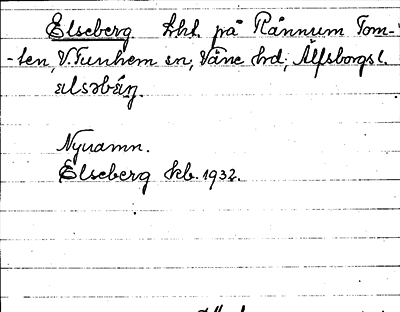 Elseberg lht på Rännum Tom-
-ten, V. Tunhem sn, Väne hd, Älfsborgs l.
Nynamn.
Elseberg kb. 1932.